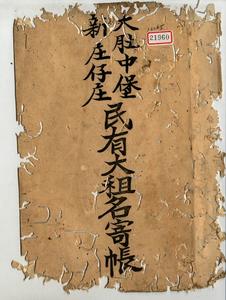 大肚中堡
新庄仔庄
民有大租名寄帳
21960